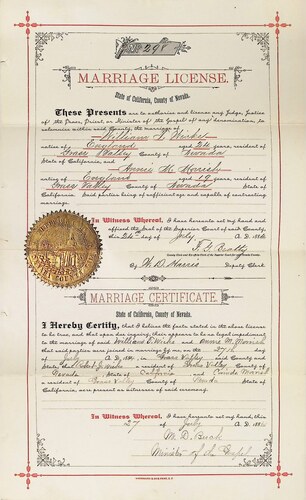 298
MARRIAGE LICENSE.
State of California, County of Nevada.
These Presents are to authorize and license any Judge, Justice
of the Peace, Priest, or Minister of the Gospel of any denomination, to
solemnize within said County, the marriage of
William
native of England aged 24 resident of
Grass Valley County of Nevada
Annie M.
native of England aged 19 resident of
Grass Valley County of Nevada State of
California. Said parties being of sufficient age and capable of contracting
marriage.
In Witness Whereof, I have hereunto set my hand and
affixed the Seal of the Superior Court of said County,
this 24th day of July A. D. 188
By W. D. Harris Deputy Clerk.
MARRIAGE CERTIFICATE
State of California, County of Nevada.
I Hereby Certify, that I believe the facts stated in the above license
to be true, and that upon due inquiry there appears to be no legal impediment
to the marriage of said William and Annie M.
that said parties were joined in marriage by me on the 27th day
of July A. D. 188 in Grass Valley said County and
State; that Robert a resident of Grass Valley County of
Nevada State of California and
a resident of Grass Valley County of Nevada State of
California, were present as witnesses of said ceremony.
In Witness Whereof, I have hereunto set my hand, this
27 July A. D. 188
M. D. Buck
Minister of the Gospel